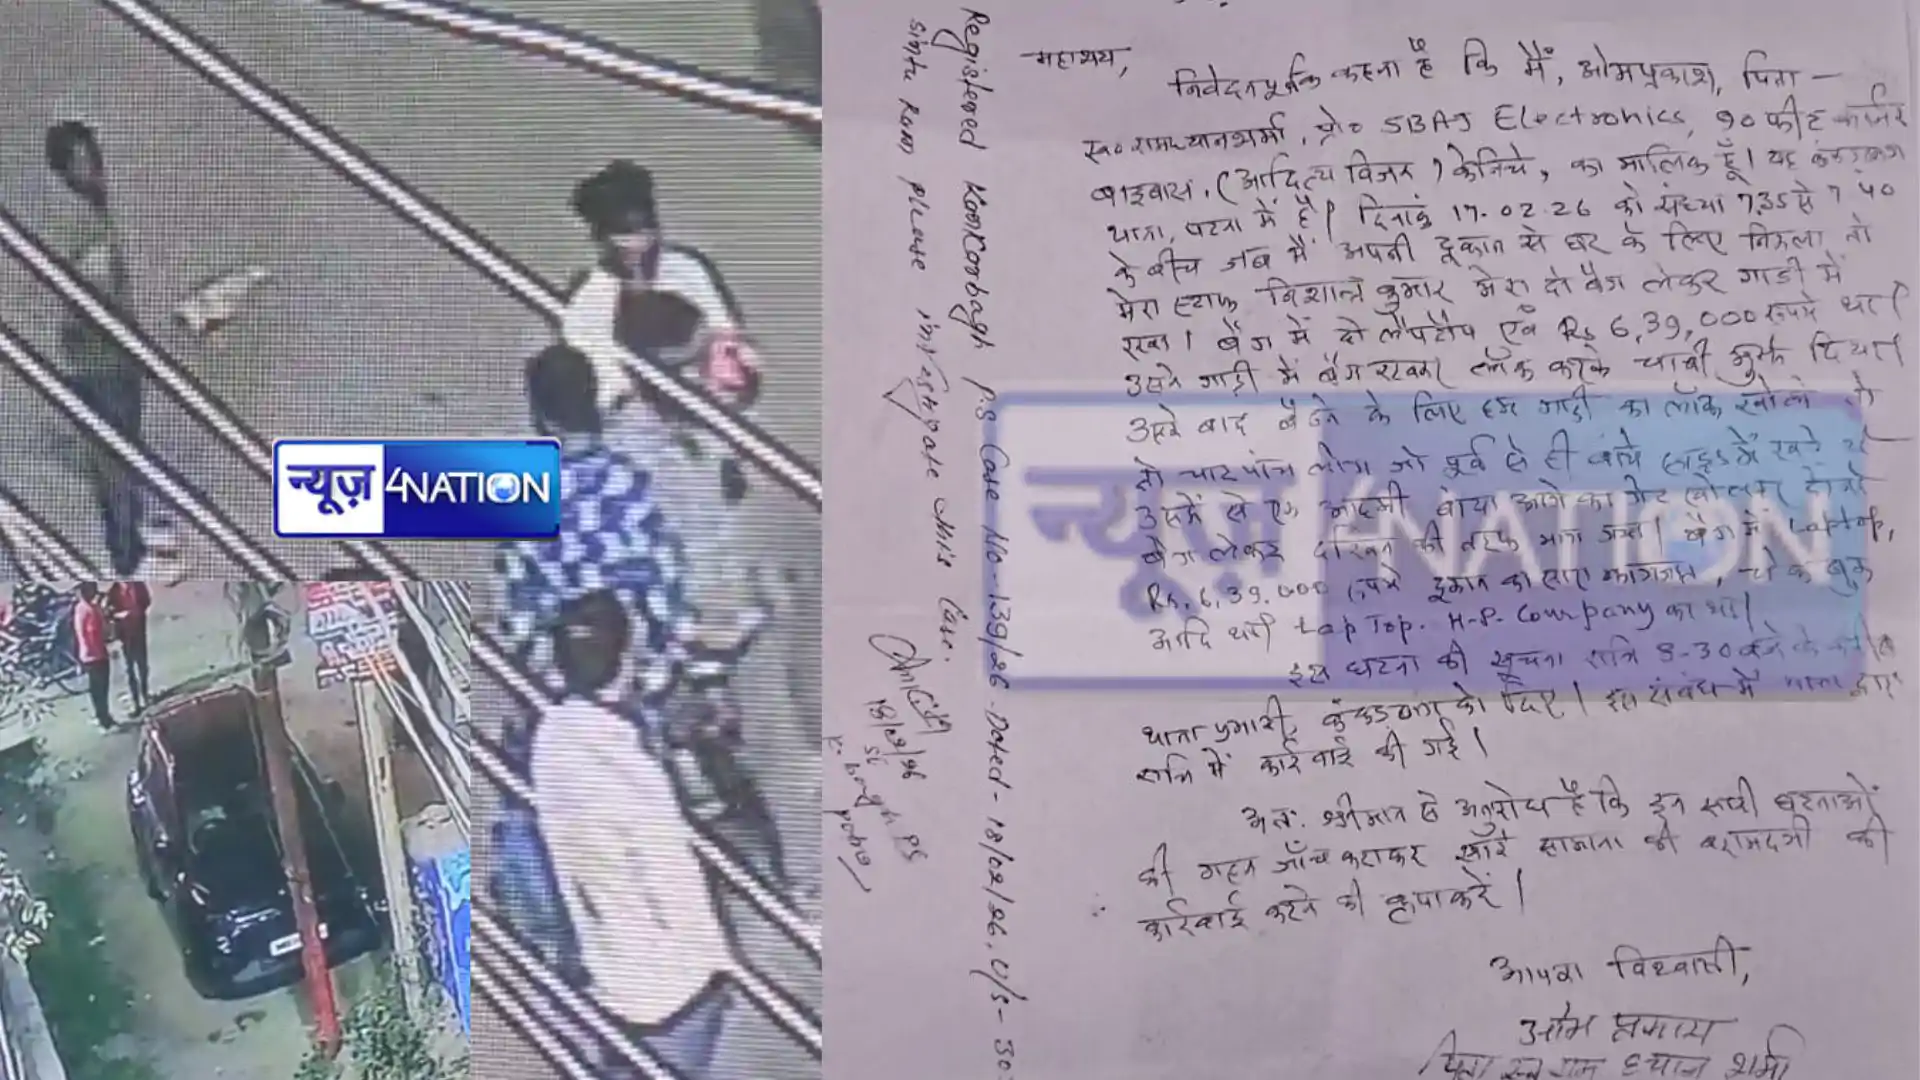 न्यूज़ 4NATION
महाशय,
निवेदनपूर्वक कहना है कि मैं, ओमप्रकाश, पिता -
स्व० रामध्यान शर्मा, प्रो० SBAJ Electronics, 90 फीट
बाइपास, (आदित्य विजन) के निचे, का मालिक हूँ। यह कंकड़बाग
थाना, पटना में है। दिनांक 17.02.26 को संध्या 7.35 से 7.40
के बीच जब मैं अपनी दूकान से घर के लिए निकला तो
मेरा स्टाफ विशाल कुमार मेरा दो बैग लेकर गाडी में
रखा। बैग में दो लैपटौप एवं Rs 6,39,000 रूपये था।
उसने गाड़ी में बैग रखकर लॉक करके चाबी मुझे दिया।
उसके बाद बैठने के लिए हम गाड़ी का लॉक खोले
तो चार पांच लोग जो पूर्व से ही बांये साइड में
उसमें से एक आदमी बांया आगे का गेट खोलकर दोनो
बैग लेकर दक्षिण की तरफ भाग गया। बैग में Laptop,
Rs. 6,39,000 रूपये दूकान का सारा कागजात, चेक बुक
आदि था। Lap Top. H.P. Company का था।
इस घटना की सूचना रात्रि 8-30 बजे के करीब
थाना प्रभारी, कंकड़बाग को दिए। इस संबंध में
रात्रि में कार्रवाई की गई।
अतः श्रीमान से अनुरोध है कि इन सारी घटनाओं
की गहन जाँच कराकर सारे सामान की बरामदगी की
कार्रवाई करने की कृपा करें।
आपका विश्वासी,
ओम प्रकाश
पिता स्व राम ध्यान शर्मा
Registered Kankarbagh P.S Case No-139/26 Dated-18/02/26. U/S-30
sintu Ram please investigate this case.
18/02/26
न्यूज़ 4NATION